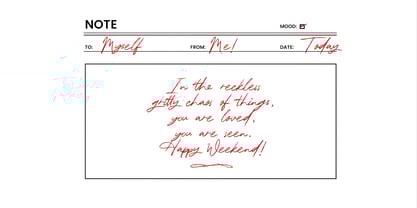 NOTE
MOOD:
TO: Myself FROM: Me! DATE: Today
In the reckless
gritty chaos of things,
you are loved,
you are seen.
Happy Weekend!